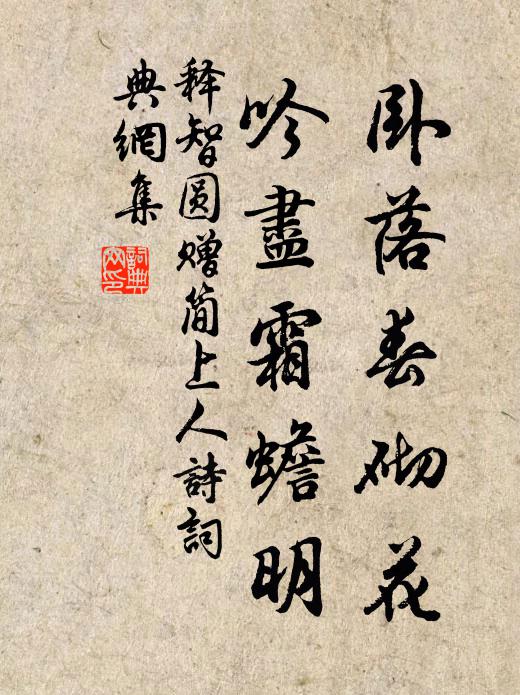 卧落春砌花
吟盡霜蟾明
释智圆赠简上人詩詞
典網集
詞典
网印